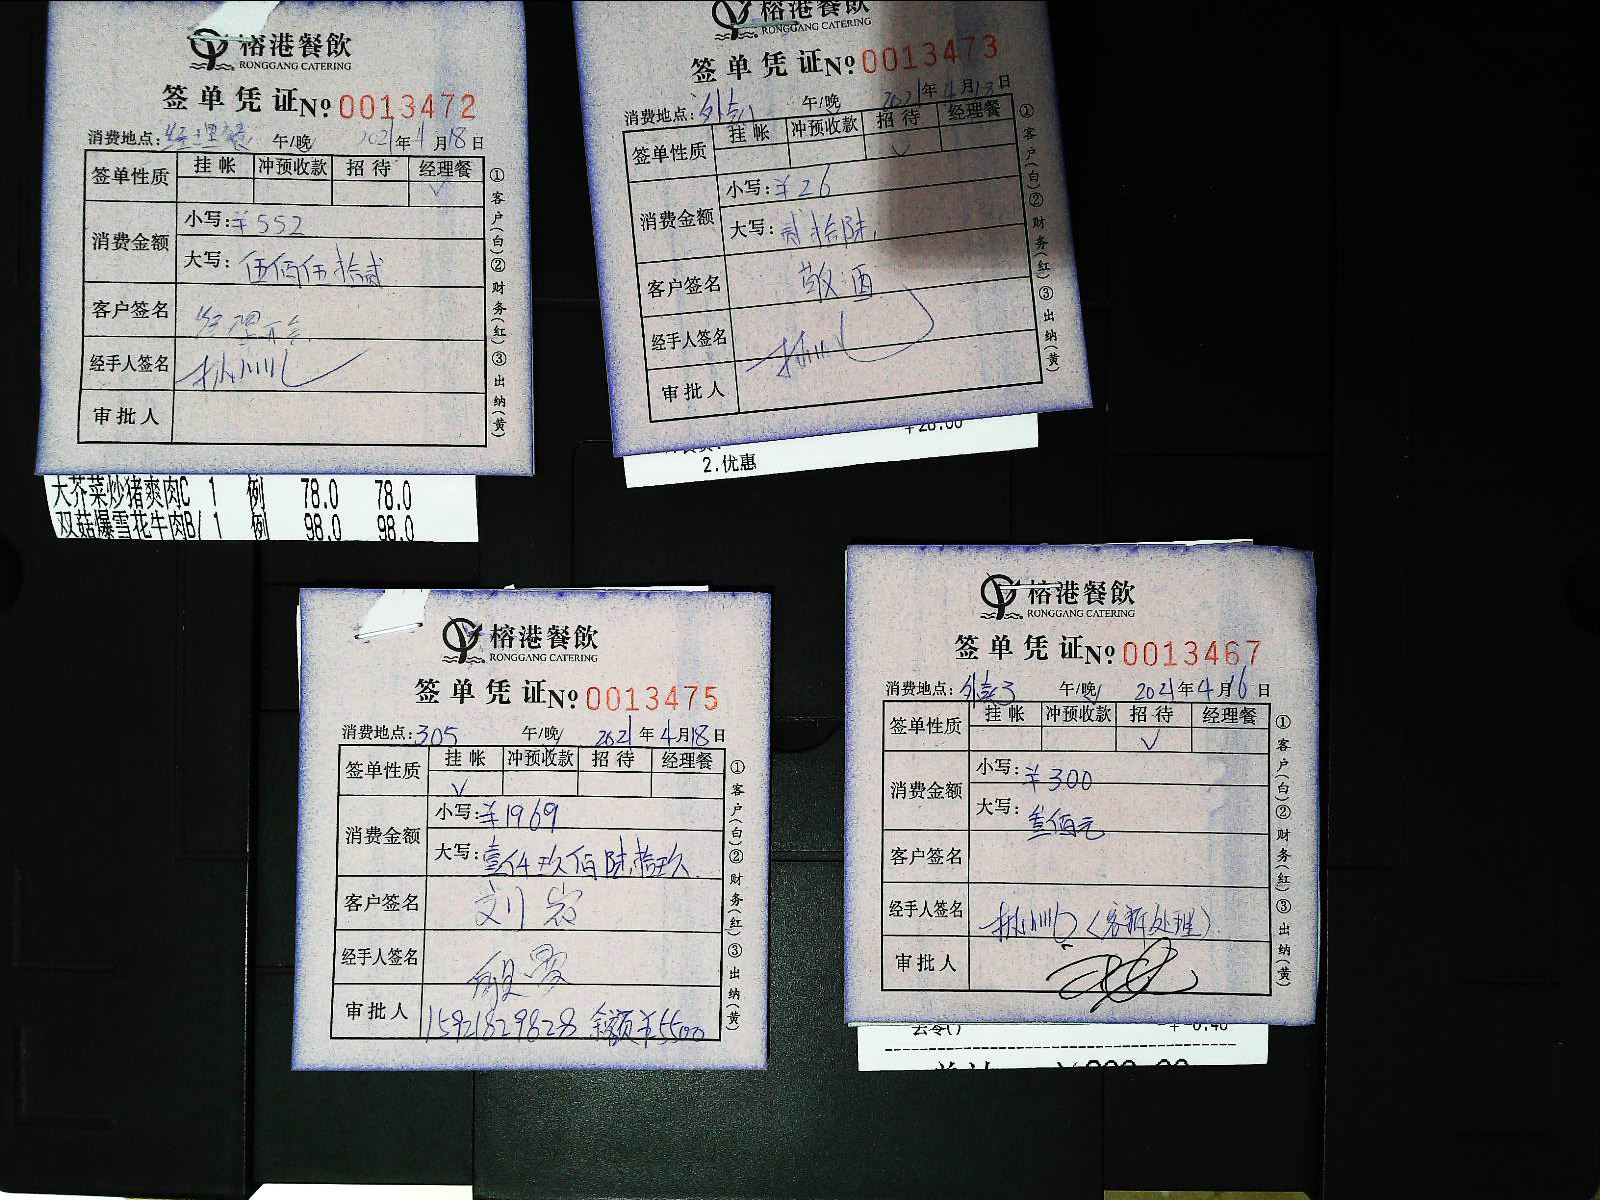 榕港餐飲
RONGGANG CATERING
签单凭证 No 0013472
消费地点: 经理餐 午/晚 2021年4月18日
签单性质 挂帐 冲预收款 招待 经理餐
√
消费金额 小写: ¥552
大写: 伍佰伍拾贰
客户签名
经手人签名
审批人
①客户(白)②财务(红)③出纳(黄)
大芥菜炒猪爽肉C 1 例 78.0 78.0
双菇爆雪花牛肉B/ 1 例 98.0 98.0
榕港餐飲
RONGGANG CATERING
签单凭证 No 0013473
消费地点: 午/晚 2021年4月18日
签单性质 挂帐 冲预收款 招待 经理餐
√
消费金额 小写: ¥26
大写: 贰拾陆
客户签名 敬酒
经手人签名
审批人
①客户(白)②财务(红)③出纳(黄)
2.优惠
榕港餐飲
RONGGANG CATERING
签单凭证 No 0013475
消费地点: 305 午/晚 2021年4月18日
签单性质 挂帐 冲预收款 招待 经理餐
√
消费金额 小写: ¥1969
大写: 壹仟玖佰陆拾玖
客户签名 刘
经手人签名
审批人 15921829828 余额¥5500
①客户(白)②财务(红)③出纳(黄)
榕港餐飲
RONGGANG CATERING
签单凭证 No 0013467
消费地点: 午/晚 2021年4月16日
签单性质 挂帐 冲预收款 招待 经理餐
√
消费金额 小写: ¥300
大写: 叁佰元
客户签名
经手人签名 (客诉处理)
审批人
①客户(白)②财务(红)③出纳(黄)
去零()